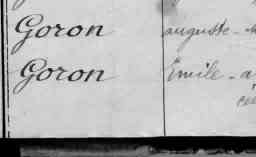 Goron auguste -
Goron Emile - a